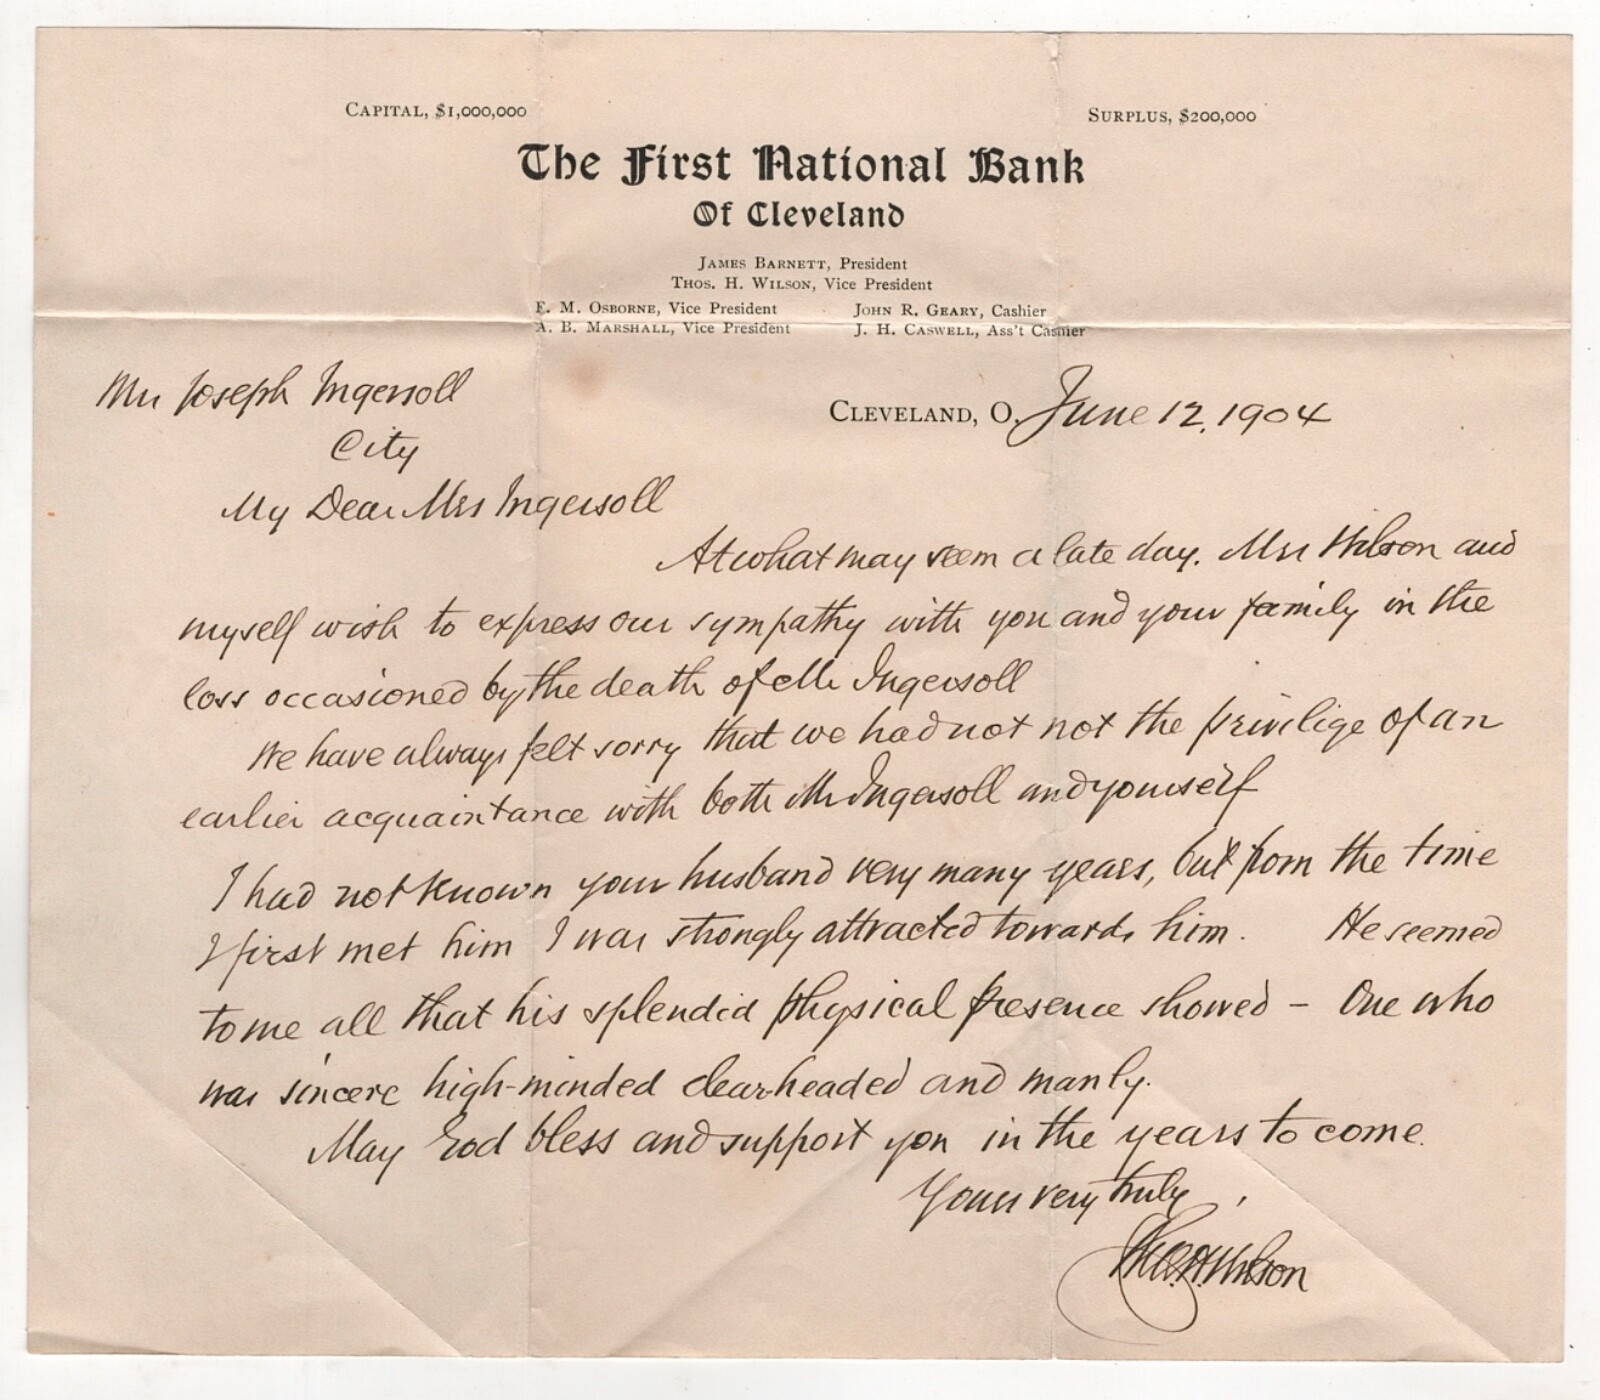 CAPITAL, $1,000,000
SURPLUS, $200,000
The First National Bank
Of Cleveland
JAMES BARNETT, President
THOS. H. WILSON, Vice President
F. M. OSBORNE, Vice President
JOHN R. GEARY, Cashier
A. B. MARSHALL, Vice President
J. H. CASWELL, Ass't Cashier
Mrs Joseph Ingersoll
CLEVELAND, O. June 12, 1904
City
My Dear Mrs Ingersoll
At what may seem a late day. Mrs Wilson and
myself wish to express our sympathy with you and your family in the
loss occasioned by the death of Mr Ingersoll
We have always felt sorry that we had not not the privilige of an
earlier acquaintance with both Mr Ingersoll and yourself
I had not known your husband very many years, but from the time
I first met him I was strongly attracted towards him. He seemed
to me all that his splendid physical presence showed - One who
was sincere high-minded clear-headed and manly.
May God bless and support you in the years to come.
Yours very truly,
Thos. H. Wilson